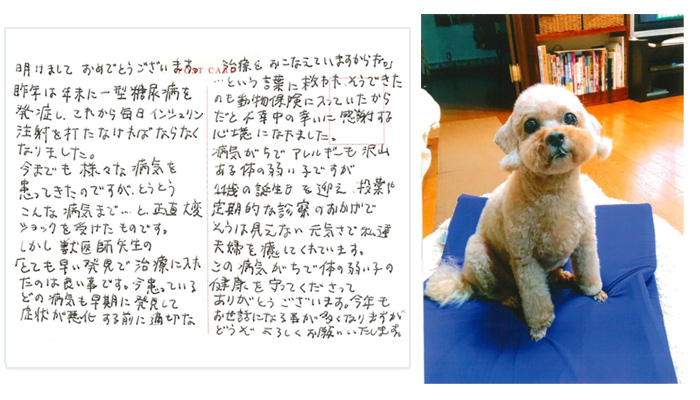 POST CARD
明けまして おめでとうございます。
昨年は年末に一型糖尿病を
発症し、これから毎日インシュリン
注射を打たなければならなく
なりました。
今までも 様々な病気を
患ってきたのですが、とうとう
こんな病気まで…と、正直大変
ショックを受けたものです。
しかし 獣医師先生の
「とても早い発見で治療に入れ
たのは良い事です。今患っている
どの病気も早期に発見して
症状が悪化する前に適切な
治療をおこなえていますからだ」
…という言葉に救われ、そうできた
のも動物保険に入っていたから
だと不幸中の幸いに感謝する
心境になれました。
病気がちでアレルギーも沢山
ある体の弱い子ですが
歳の誕生日を迎え、投薬や
定期的な診察のおかげで
そうは見えない元気さで私達
夫婦を癒してくれています。
この病気がちで体の弱い子の
健康を守ってくださって
ありがとうございます。今年も
お世話になる事が多くなりますが
どうぞ よろしくお願いいたします。